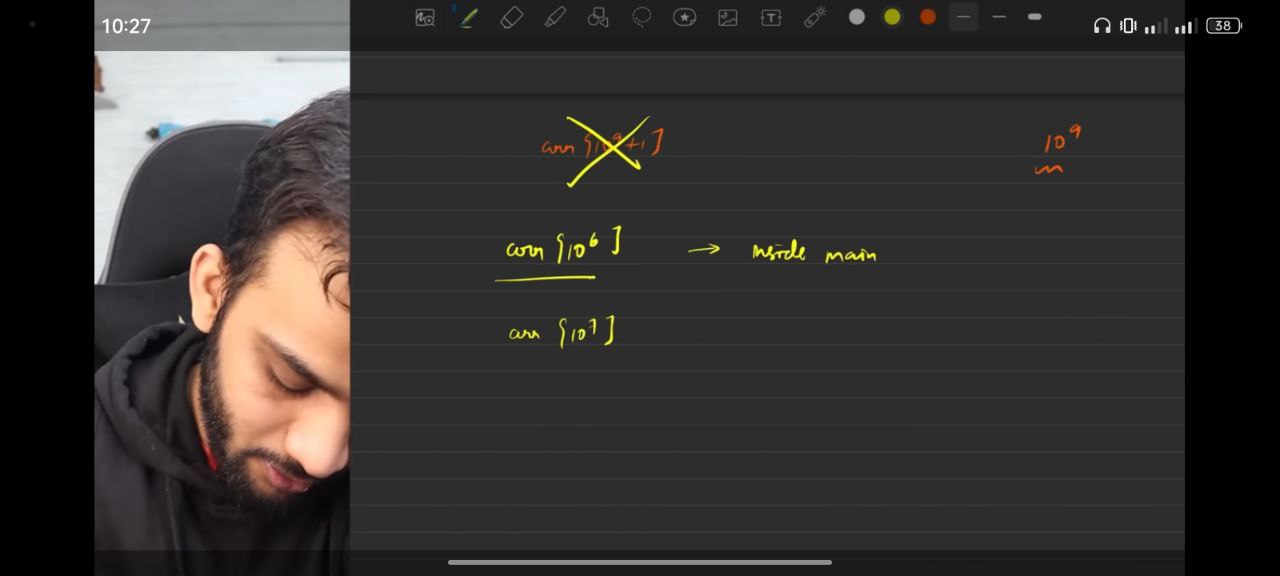 10:27
38
arr [10⁹+1]
10⁹
arr [10⁶] → inside main
arr [10⁷]